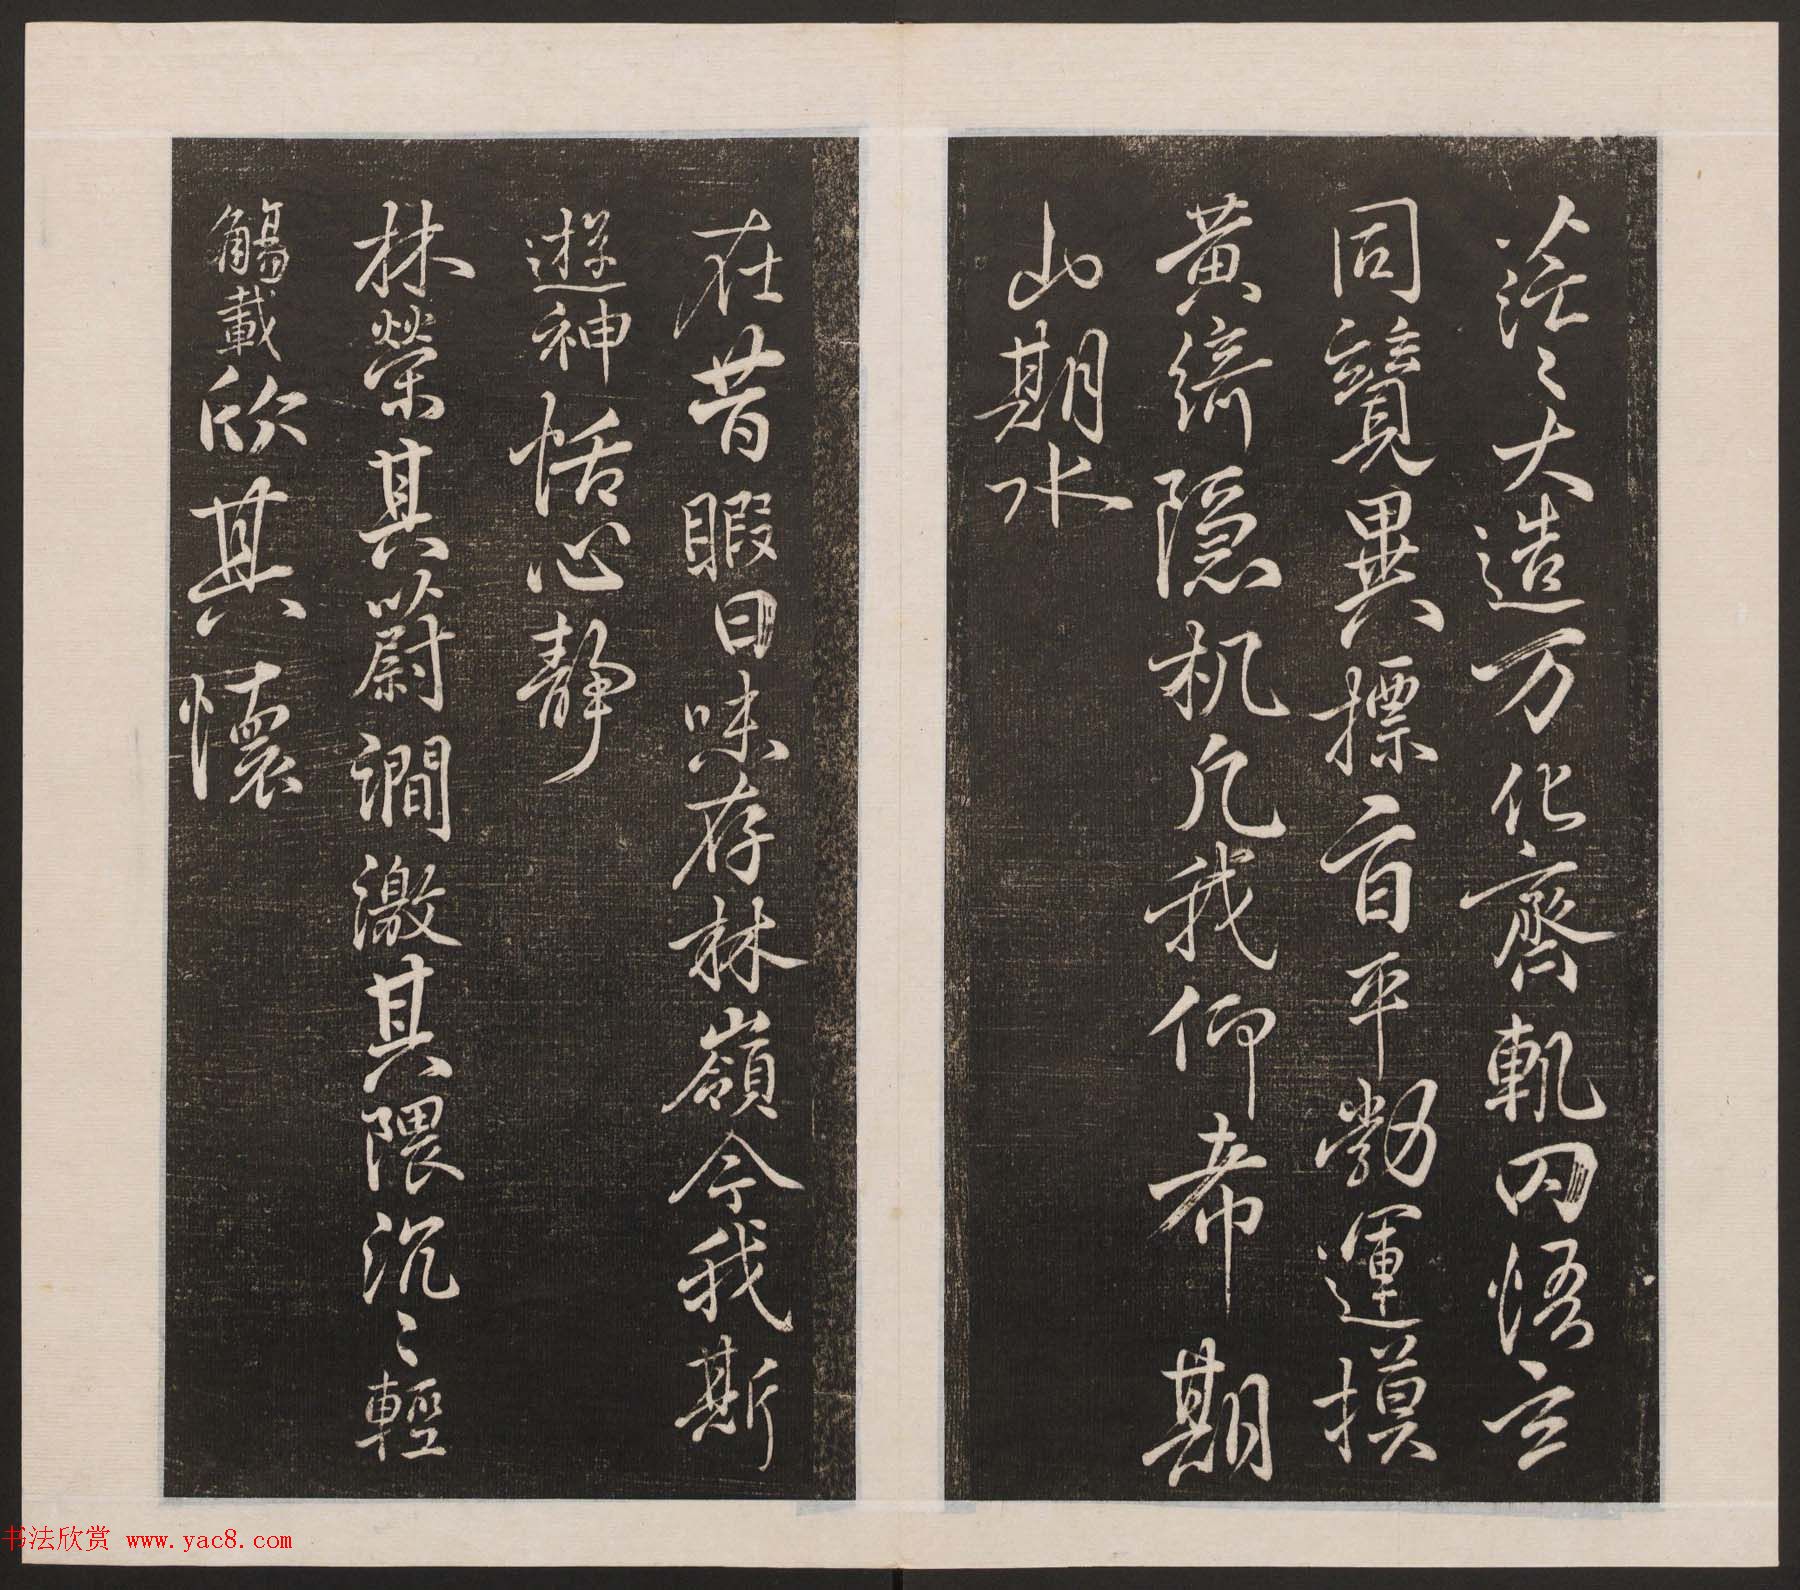 茫〻大造万化齊軌罔悟玄
同競異摽旨平勃運摸
黄綺隠机凡我仰希期
山期水
在昔暇日味存林嶺今我斯
遊神恬心靜
林榮其蔚澗激其隈沉〻輕
觴載欣其懷
书法欣赏 www.yac8.com